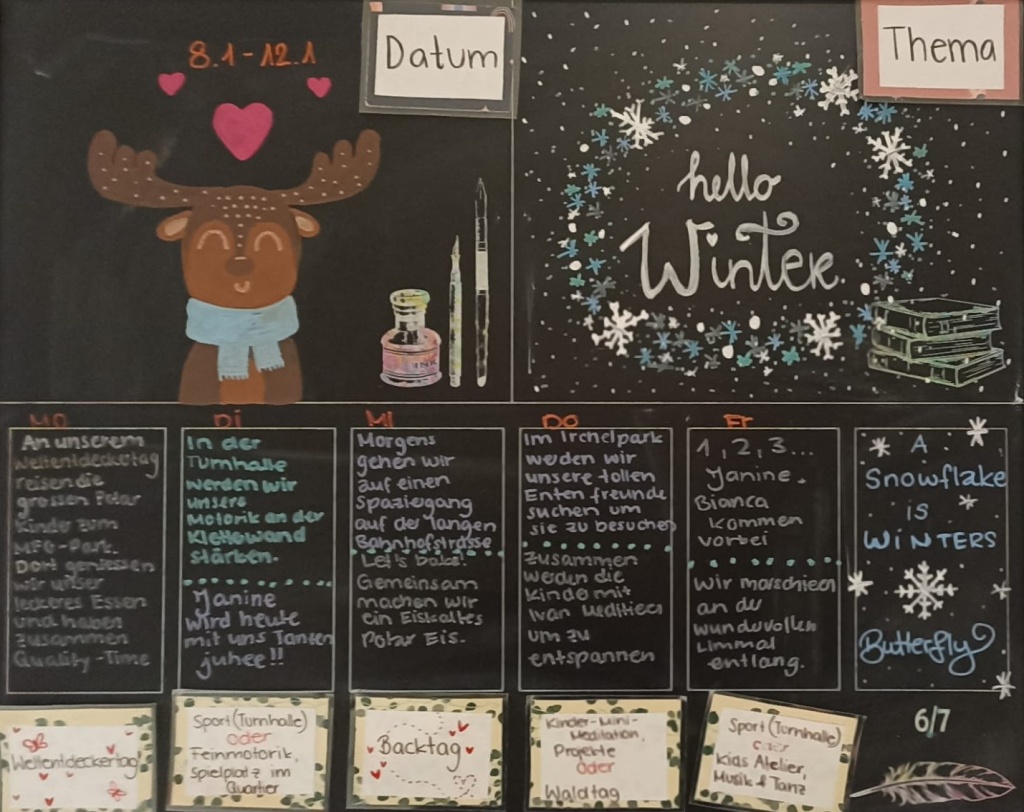 8.1-12.1
Datum
Thema
hello
Winter
MO
An unserem
Weltentdeckertag
reisen die
grossen Polar
Kinder zum
MFO-Park.
Dort geniessen
wir unser
leckeres Essen
und haben
zusammen
Quality-Time
DI
In der
Turnhalle
werden wir
unsere
Motorik an der
Kletterwand
stärken.
Janine
wird heute
mit uns Tanzen
juhee!!
MI
Morgens
gehen wir
auf einen
Spaziegang
auf der langen
Bahnhofstrasse
Let's Bake!
Gemeinsam
machen wir
ein Eiskaltes
Polar Eis.
DO
Im Irchelpark
werden wir
unsere tollen
Enten freunde
suchen um
sie zu besuchen
Zusammen
werden die
Kinder mit
Ivan Meditieren
um zu
entspannen
Fr
1, 2, 3...
Janine.
Bianca
kommen
vorbei
Wir marschieren
an der
wundervollen
Limmat
entlang.
A
Snowflake
is
WiNTERS
Butterfly
Weltentdeckertag
Sport (Turnhalle)
oder
Feinmotorik,
Spielplatz im
Quartier
Backtag
Kinder-Mini-
Meditation,
Projekte
oder
Waldtag
Sport (Turnhalle)
oder
Kids Atelier,
Musik & Tanz
6/7